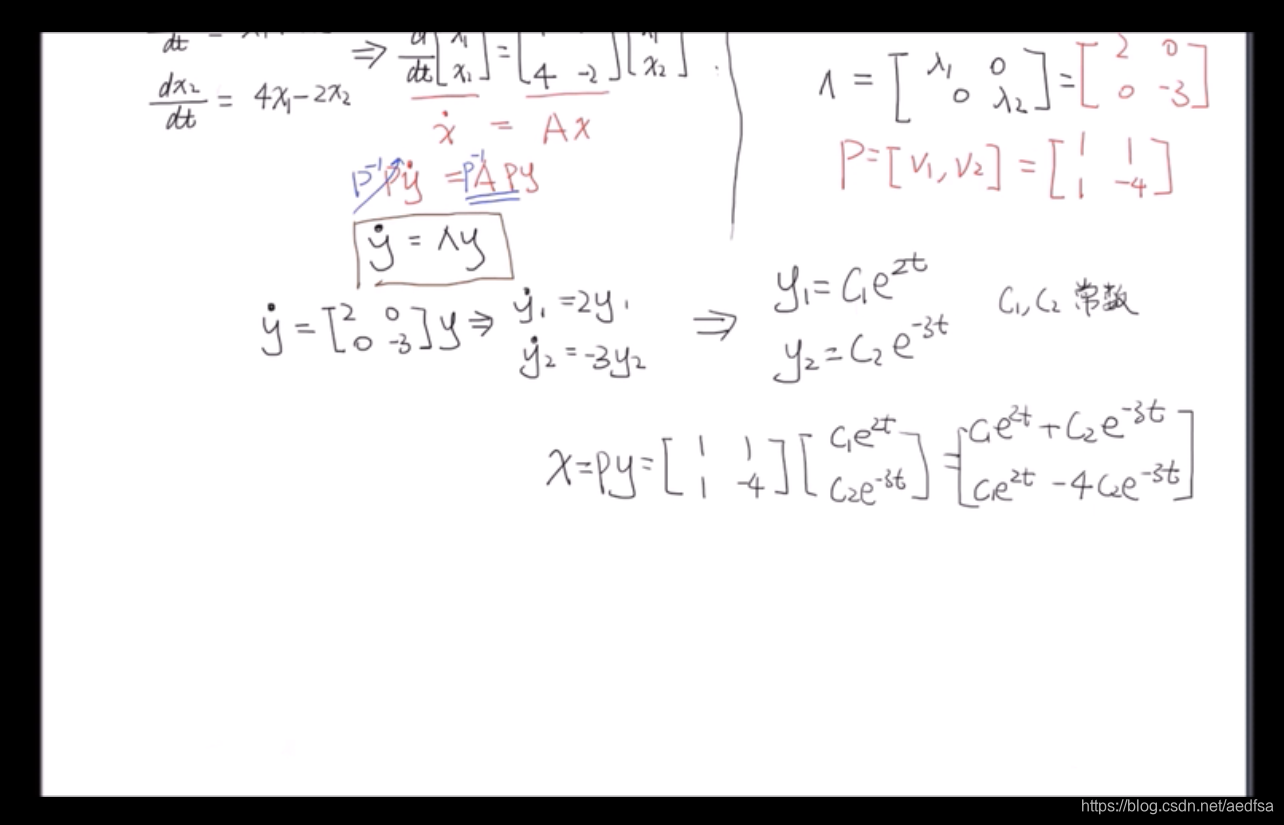 dt =
dx₂/dt = 4x₁-2x₂
⇒ d/dt [x₁ x₂] = [4 -2] [x₁ x₂]
ẋ = Ax
P⁻¹Pẏ = P⁻¹APy
ẏ = Λy
Λ = [λ₁ 0; 0 λ₂] = [2 0; 0 -3]
P = [V₁, V₂] = [1 1; 1 -4]
ẏ = [2 0; 0 -3] y ⇒ ẏ₁ = 2y₁
ẏ₂ = -3y₂
⇒ y₁ = C₁e^{2t}
y₂ = C₂e^{-3t}
C₁, C₂ 常数
x = Py = [1 1; 1 -4] [C₁e^{2t}; C₂e^{-3t}] = [C₁e^{2t} + C₂e^{-3t}; C₁e^{2t} - 4C₂e^{-3t}]
https://blog.csdn.net/aedfsa